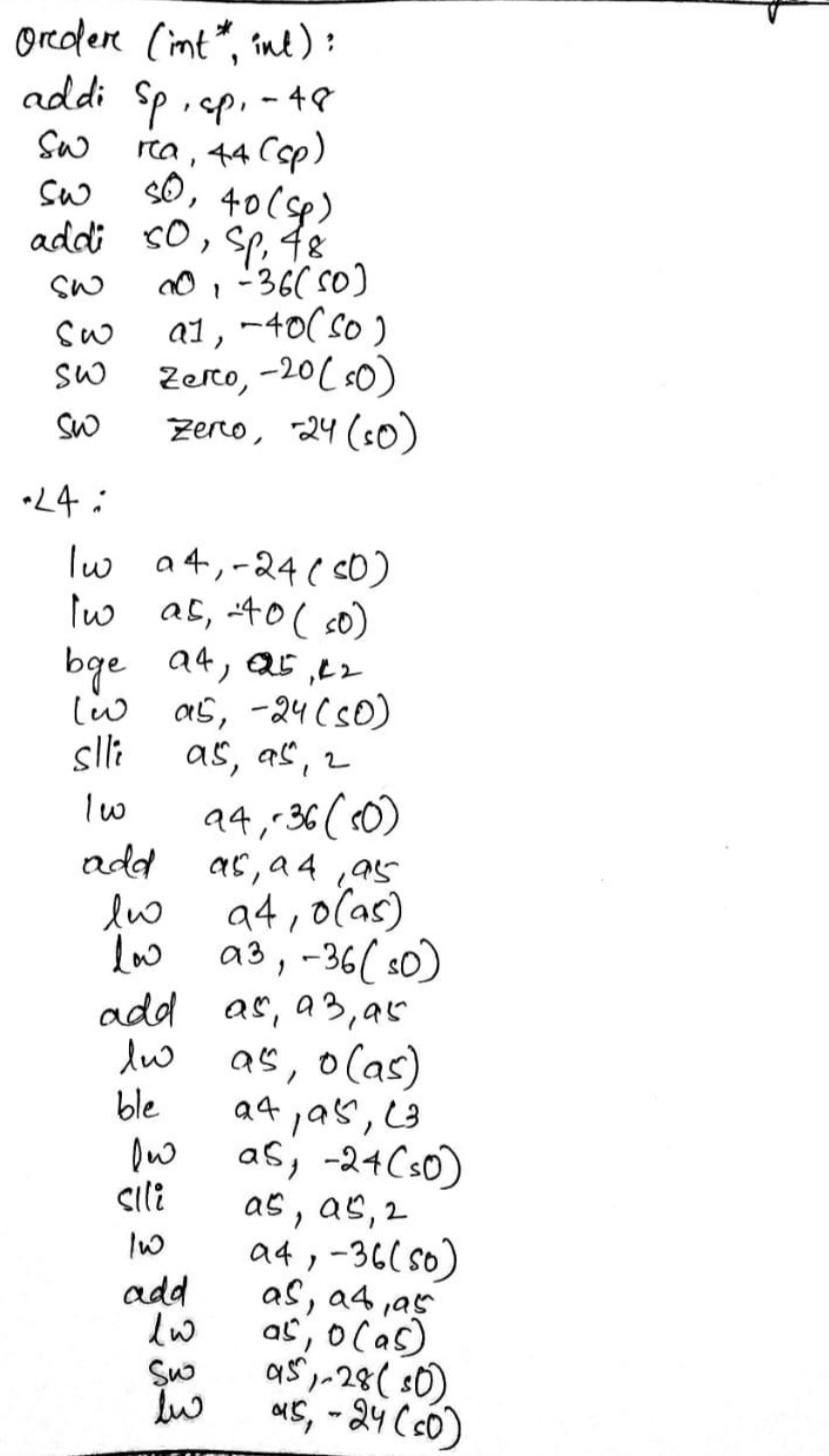 order (int*, int):
addi sp, sp, -48
sw ra, 44(sp)
sw s0, 40(sp)
addi s0, sp, 48
sw a0, -36(s0)
sw a1, -40(s0)
sw zero, -20(s0)
sw zero, -24(s0)
.L4:
lw a4, -24(s0)
lw a5, -40(s0)
bge a4, a5, L2
lw a5, -24(s0)
slli a5, a5, 2
lw a4, -36(s0)
add a5, a4, a5
lw a4, 0(a5)
lw a3, -36(s0)
add a5, a3, a5
lw a5, 0(a5)
ble a4, a5, L3
lw a5, -24(s0)
slli a5, a5, 2
lw a4, -36(s0)
add a5, a4, a5
lw a5, 0(a5)
sw a5, -28(s0)
lw a5, -24(s0)